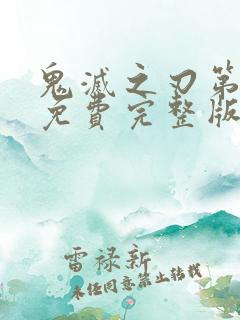 鬼滅之刃第
免費完整版
雷禄新
未经同意禁止转载